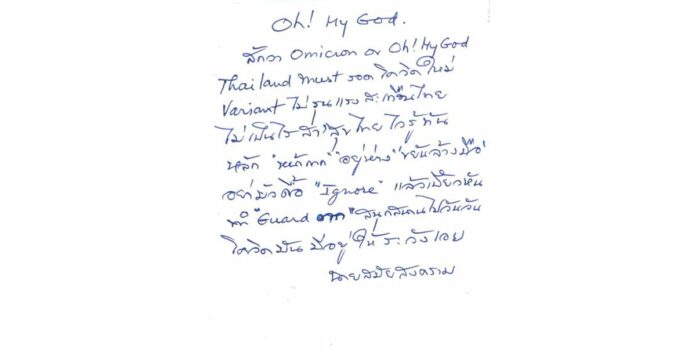 Oh! My God.
สักวา Omicron or Oh! My God
Thailand Must รอด โควิดใหม่
Variant ไม่รุนแรง สะเทือนไทย
ไม่เป็นไร สาธาสุขไทย ไวรู้ทัน
หลัก "หน้ากาก" "อยู่ห่าง" ขยันล้างมือ"
อย่ามัวดื้อ "Ignore" แล้วเบี้ยวหัน
"Guard ตก" สนุกสนานไปวันวัน
โควิดมันมีอยู่ให้ระวังเอย
นายสมัยสงคราม